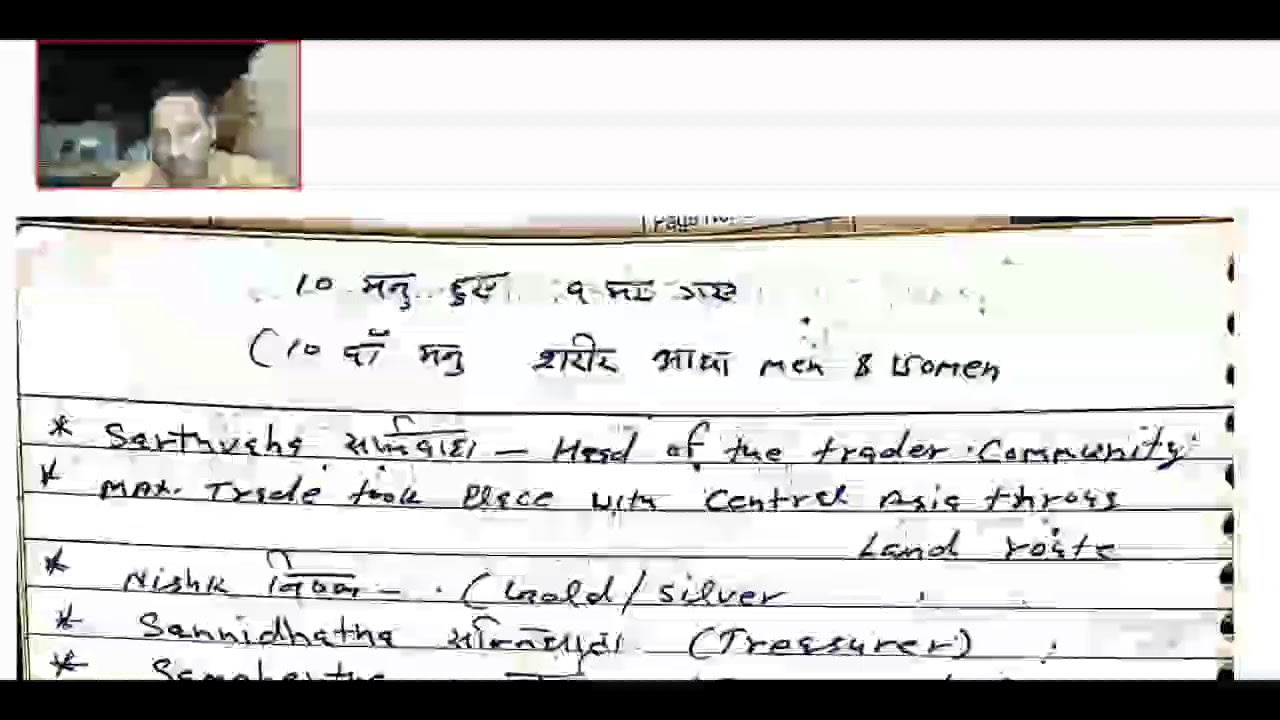 10 मनु हुए
(10 वाँ मनु शरीर आधा men & women
* Sarthvaha सार्थवाहा – Head of the trader Community
* Max. Trade took place with Central Asia throug
Land route
* Nishk निष्क – (Gold/silver
* Sannidhatha सन्निधाता (Treasurer)